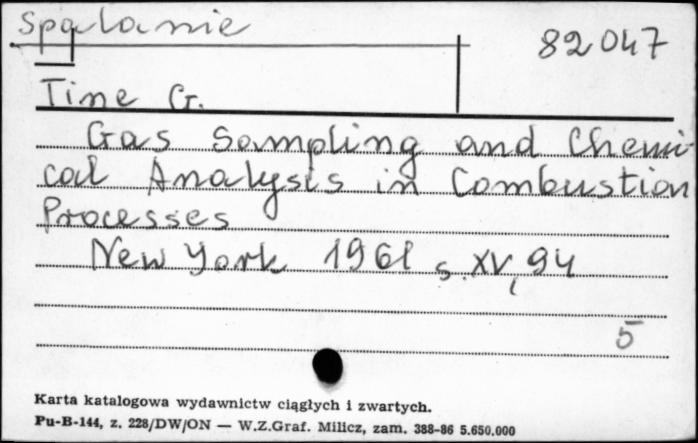 Spalanie
82047
Tine G.
Gas Sampling and Chemi-
cal Analysis in Combustion
Processes
New York 1961 s. XV, 94
5
Karta katalogowa wydawnictw ciągłych i zwartych.
Pu-B-144, z. 228/DW/ON — W.Z.Graf. Milicz, zam. 388-86 5.650.000